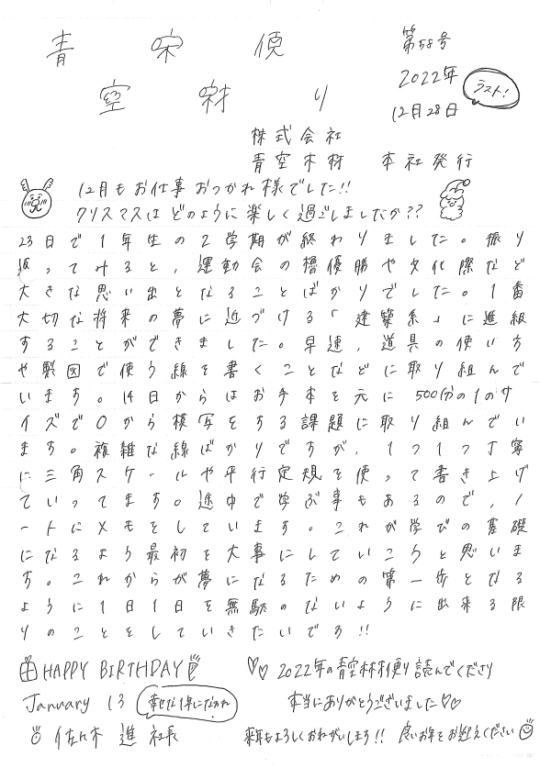 青空 木材 便り
第58号
2022年
12月28日
ラスト!
株式会社
青空木材 本社発行
12月もお仕事おつかれ様でした!!
クリスマスはどのように楽しく過ごしましたか??
23日で1年生の2学期が終わりました。振り
返ってみると、運動会の櫓優勝や文化際など
大きな思い出となることばかりでした。1番
大切な将来の夢に近づける「建築系」に進級
することができました。早速、道具の使い方
や製図で使う線を書くことなどに取り組んで
います。14日からはお手本を元に500分の1のサ
イズで0から模写をする課題に取り組んでい
ます。複雑な線ばかりですが、1つ1つ丁寧
に三角スケールや平行定規を使って書き上げ
ていってます。途中で学ぶ事もあるので、ノ
ートにメモをしています。これが学びの基礎
になるよう最初を大事にしていこうと思いま
す。これからが夢になるための第一歩となる
ように1日1日を無駄のないように出来る限
りのことをしていきたいです!!
HAPPY BIRTHDAY
January 13
幸せな1年になあれ
佐々木 進 社長
2022年の青空木材便り読んでくださり
本当にありがとうございました
来年もよろしくおねがいします!! 良いお年をお迎えください